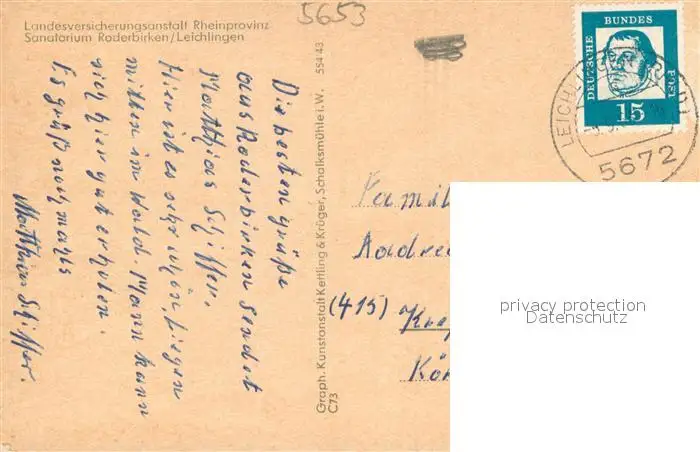 5653
Landesversicherungsanstalt Rheinprovinz
Sanatorium Roderbirken/Leichlingen
Die besten grüße
aus Roderbirken sendet
Matthias Schiffer.
Hier ist es sehr schön, liegen
mitten im Wald. Mann kann
sich hier gut erholen.
Es grüßt nochmals
Matthias Schiffer.
554 43
Graph. Kunstanstalt Kettling & Krüger, Schalksmühle i.W.
C73
DEUTSCHE
BUNDES
POST
15
LEICHL
5672
Famil
Andre
(415)
Kre
Kön
privacy protection
Datenschutz